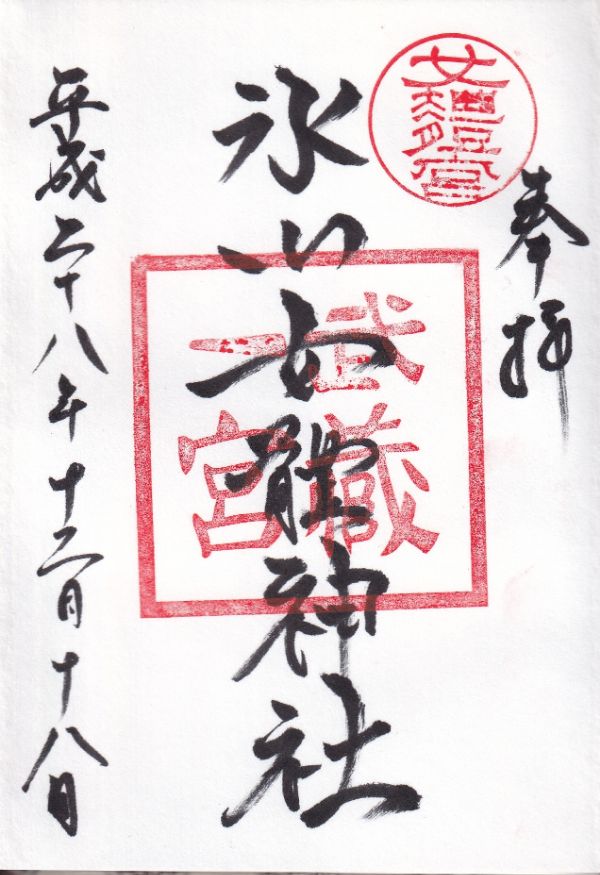 奉拝
女體宮
氷川女體神社
武蔵一宮
平成二十八年十二月十八日